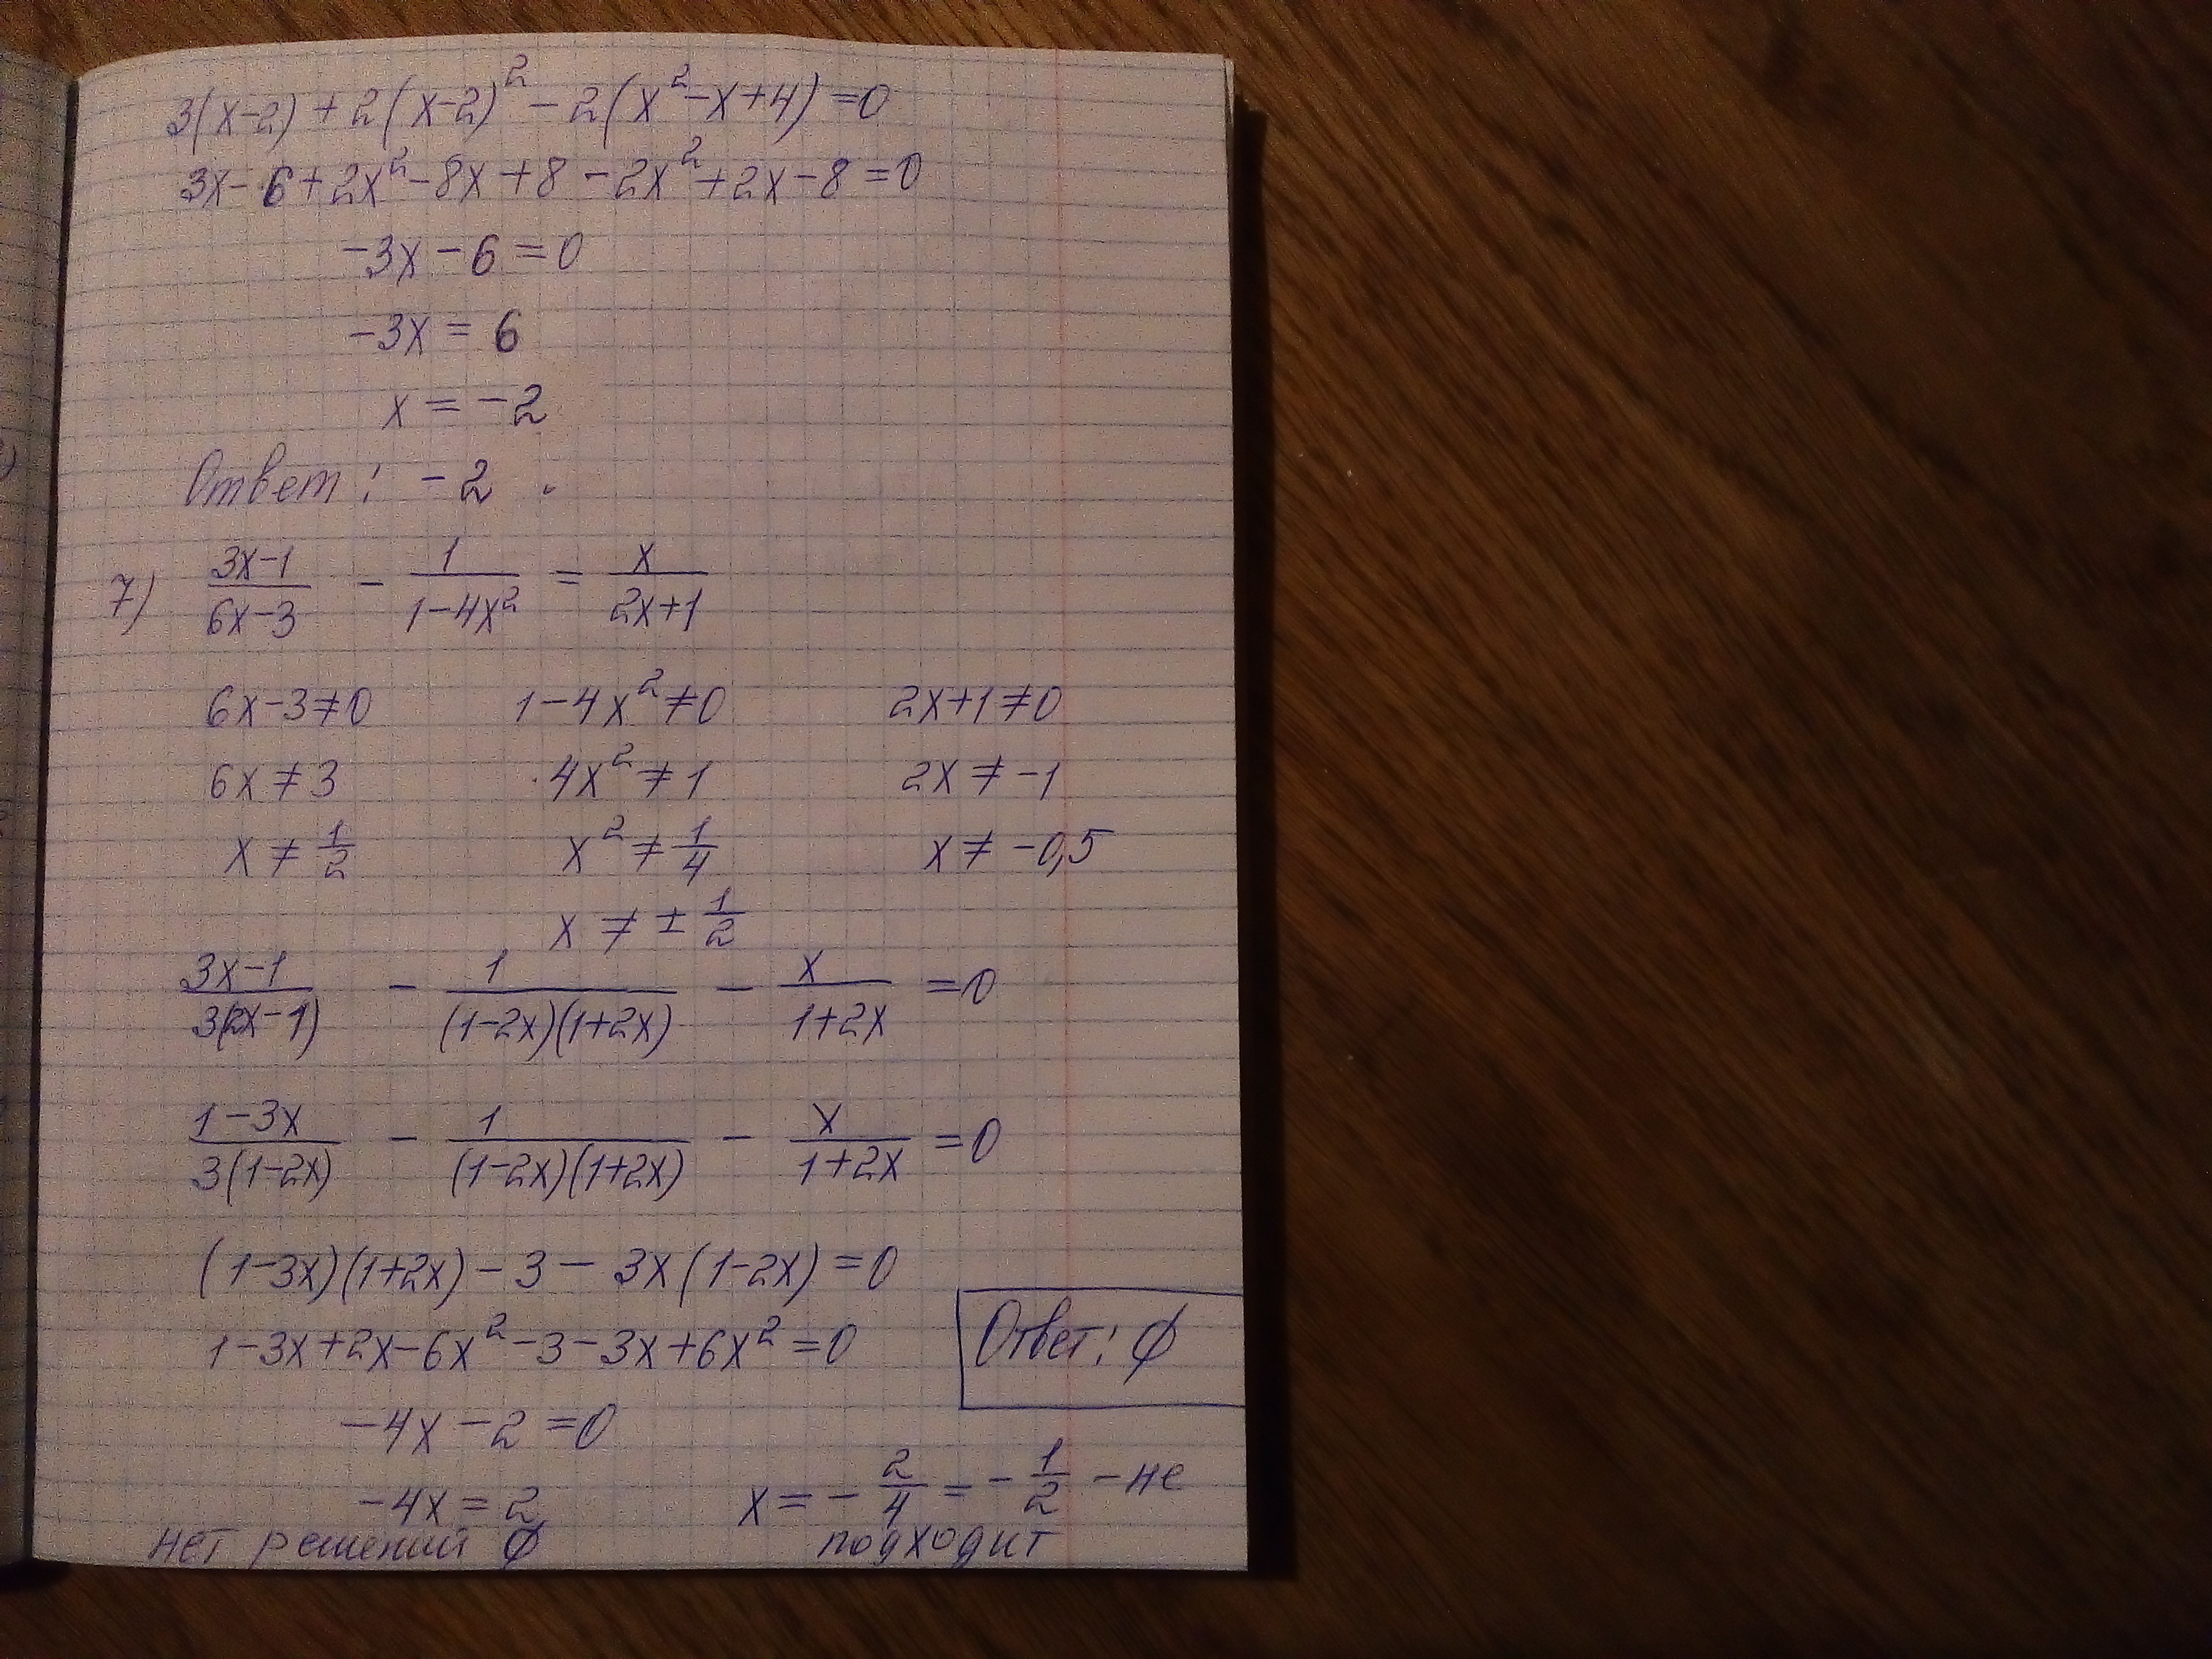 3(x-2) + 2(x-2)² - 2(x²-x+4) = 0
3x - 6 + 2x² - 8x + 8 - 2x² + 2x - 8 = 0
-3x - 6 = 0
-3x = 6
x = -2
Ответ: -2.
7) (3x-1)/(6x-3) - 1/(1-4x²) = x/(2x+1)
6x-3≠0 1-4x²≠0 2x+1≠0
6x≠3 4x²≠1 2x≠-1
x≠1/2 x²≠1/4 x≠-0,5
x≠±1/2
(3x-1)/(3(2x-1)) - 1/((1-2x)(1+2x)) - x/(1+2x) = 0
(1-3x)/(3(1-2x)) - 1/((1-2x)(1+2x)) - x/(1+2x) = 0
(1-3x)(1+2x) - 3 - 3x(1-2x) = 0
1-3x+2x-6x²-3-3x+6x²=0
Ответ: ∅
-4x-2=0
-4x=2 x = -2/4 = -1/2 - не
нет решений ∅ подходит